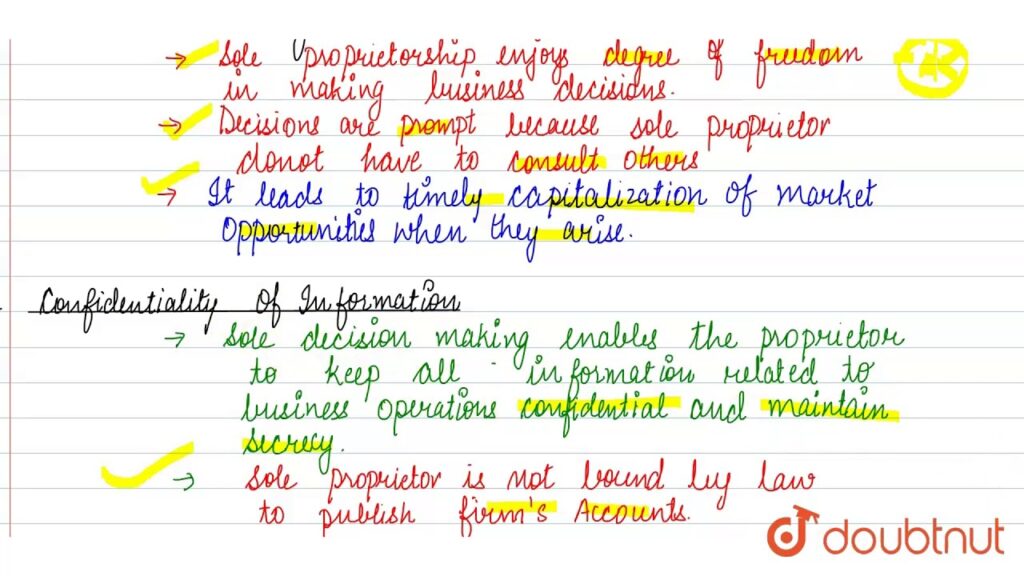 → Sole proprietorship enjoys degree of freedom
in making business decisions.
→ Decisions are prompt because sole proprietor
donot have to consult others
→ It leads to timely capitalization of market
opportunities when they arise.
Confidentiality Of Information
→ Sole decision making enables the proprietor
to keep all information related to
business operations confidential and maintain
secrecy.
→ Sole proprietor is not bound by law
to publish firm's Accounts.
doubtnut